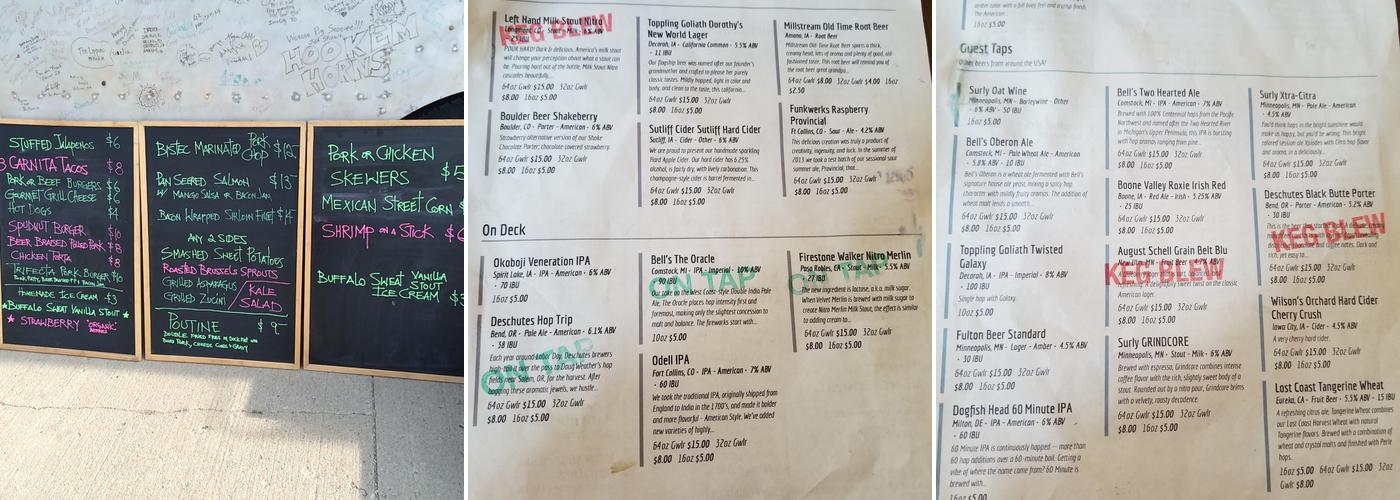 HOOK EM
HORNS
STUFFED Jalapenos $6
3 CARNITA TACOS $8
PORK or BEEF BURGERS $6
GOURMET GRILL CHEESE $6
HOT DOGS $4
SPUDNUT BURGER $10
BEER BRAISED PULLED PORK $8
CHICKEN TORTA $8
TRIFECTA PORK BURGER $10
HOMEMADE ICE CREAM $3
★BUFFALO SWEAT VANILLA STOUT★
★ STRAWBERRY "ORGANIC"
BISTEC MARINATED PORK
CHOP $12
PAN SEERED SALMON $13
W/ MANGO SALSA OR BACON JAM
BACON WRAPPED SIRLOIN FILET $15
ANY 2 SIDES
SMASHED SWEET POTATOES
ROASTED BRUSSELS SPROUTS
GRILLED ASPARAGUS
GRILLED ZUCINI
KALE
SALAD
POUTINE $9
DOUBLE FRIED FRIES IN DUCK FAT W/
PORK or CHICKEN
SKEWERS $5
MEXICAN STREET CORN
SHRIMP ON A STICK
BUFFALO SWEAT VANILLA
STOUT
ICE CREAM $3
Left Hand Milk Stout Nitro
Longmont, CO · Stout - Milk · 6% ABV
· 25 IBU
KEG BLEW
POUR HARD! Dark & delicious, America's milk stout
will change your perception about what a stout can
be. Pouring hard out of the bottle, Milk Stout Nitro
cascades beautifully...
64oz Gwlr $15.00 32oz Gwlr
$8.00 16oz $5.00
Boulder Beer Shakeberry
Boulder, CO · Porter - American · 6% ABV
Strawberry alternative version of our Shake
Chocolate Porter; chocolate covered strawberry.
64oz Gwlr $15.00 32oz Gwlr
$8.00 16oz $5.00
Toppling Goliath Dorothy's
New World Lager
Decorah, IA · California Common · 5.5% ABV
· 11 IBU
Our flagship beer was named after our founder's
grandmother and crafted to please her purely
classic tastes. Mildly hopped, light in color and
body, and clean to the taste, this california...
64oz Gwlr $15.00 32oz Gwlr
$8.00 16oz $5.00
Sutliff Cider Sutliff Hard Cider
Sutliff, IA · Cider - Other · 6% ABV
We are proud to present our handmade sparkling
Hard Apple Cider. Our hard cider has 6.25%
alcohol, is fairly dry, with lively carbonation. This
champagne-style cider is barrel fermented in...
64oz Gwlr $15.00 32oz Gwlr
$8.00 16oz $5.00
Millstream Old Time Root Beer
Amana, IA · Root Beer
Millstream Old-Time Root Beer sports a thick,
creamy head, lots of aroma and plenty of good, old-
fashioned taste. This root beer will remind you of
the root beer great grandpa...
64oz Gwlr $8.00 32oz Gwlr $4.00 16oz
$2.50
Funkwerks Raspberry
Provincial
Ft Collins, CO · Sour - Ale · 4.2% ABV
This delicious creation was truly a product of
creativity, ingenuity, and luck. In the summer of
2013 we took a test batch of our sessional sour
summer ale, Provincial, that...
64oz Gwlr $15.00 32oz Gwlr
$8.00 16oz $5.00
On Deck
Okoboji Veneration IPA
Spirit Lake, IA · IPA - American · 6% ABV
· 70 IBU
16oz $5.00
Deschutes Hop Trip
Bend, OR · Pale Ale - American · 6.1% ABV
· 38 IBU
Each year around Labor Day, Deschutes brewers
high-tail it over the pass to Doug Weather's hop
fields near Salem, OR, for the harvest. After
bagging these aromatic jewels, we hustle...
ON TAP
64oz Gwlr $15.00 32oz Gwlr
$8.00 16oz $5.00
Bell's The Oracle
Comstock, MI · IPA - Imperial · 10% ABV
· 90 IBU
ON TAP
Our take on the West Coast-style Double India Pale
Ale, The Oracle places hop intensity first and
foremost, making only the slightest concession to
malt and balance. The fireworks start with...
10oz $5.00
Odell IPA
Fort Collins, CO · IPA - American · 7% ABV
· 60 IBU
We took the traditional IPA, originally shipped from
England to India in the 1700's, and made it bolder
and more flavorful - American Style. We've added
new varieties of highly...
64oz Gwlr $15.00 32oz Gwlr
$8.00 16oz $5.00
Firestone Walker Nitro Merlin
Paso Robles, CA · Stout - Milk · 5.5% ABV
· 27 IBU
ON TAP
The new ingredient is lactose, a.k.a. milk sugar.
When Velvet Merlin is brewed with milk sugar to
create Nitro Merlin Milk Stout, the effect is similar
to adding cream to...
64oz Gwlr $15.00 32oz Gwlr
$8.00 16oz $5.00
amber color with a full body feel and a crisp finish.
The American...
$8.00 16oz $5.00
Guest Taps
Other beers from around the USA!
Surly Oat Wine
Minneapolis, MN · Barleywine - Other
· 6% ABV · 50 IBU
16oz $5.00
Bell's Oberon Ale
Comstock, MI · Pale Wheat Ale - American
· 5.8% ABV · 10 IBU
Bell's Oberon is a wheat ale fermented with Bell's
signature house ale yeast, mixing a spicy hop
character with mildly fruity aromas. The addition of
wheat malt lends a smooth...
64oz Gwlr $15.00 32oz Gwlr
$8.00 16oz $5.00
Toppling Goliath Twisted
Galaxy
Decorah, IA · IPA - Imperial · 8% ABV
· 100 IBU
Single hop with Galaxy.
10oz $5.00
Fulton Beer Standard
Minneapolis, MN · Lager - Amber · 4.5% ABV
· 30 IBU
64oz Gwlr $15.00 32oz Gwlr
$8.00 16oz $5.00
Dogfish Head 60 Minute IPA
Milton, DE · IPA - American · 6% ABV
· 60 IBU
60 Minute IPA is continuously hopped -- more than
60 hop additions over a 60-minute boil. Getting a
vibe of where the name came from? 60 Minute is
brewed with...
16oz $5.00
Bell's Two Hearted Ale
Comstock, MI · IPA - American · 7% ABV
Brewed with 100% Centennial hops from the Pacific
Northwest and named after the Two Hearted River
in Michigan's Upper Peninsula, this IPA is bursting
with hop aromas ranging from pine...
64oz Gwlr $15.00 32oz Gwlr
$8.00 16oz $5.00
Boone Valley Roxie Irish Red
Boone, IA · Red Ale - Irish · 5.25% ABV
· 25 IBU
64oz Gwlr $15.00 32oz Gwlr
$8.00 16oz $5.00
August Schell Grain Belt Blu
New Ulm, MN
KEG BLEW
American lager.
64oz Gwlr $15.00 32oz Gwlr
$8.00 16oz $5.00
Surly GRINDCORE
Minneapolis, MN · Stout - Milk · 6% ABV
Brewed with espresso, Grindcore combines intense
coffee flavor with the rich, slightly sweet body of a
stout. Rounded out by a nitro pour, Grindcore brims
with a velvety, roasty decadence.
64oz Gwlr $15.00 32oz Gwlr
$8.00 16oz $5.00
Surly Xtra-Citra
Minneapolis, MN · Pale Ale - American
· 4.5% ABV
You'd think hops in the bright sunshine would
make us happy, but you'd be wrong. This bright
colored session ale Xplodes with Citra hop flavor
and aroma, in a deliciously...
64oz Gwlr $15.00 32oz Gwlr
$8.00 16oz $5.00
Deschutes Black Butte Porter
Bend, OR · Porter - American · 5.2% ABV
· 30 IBU
KEG BLEW
rich, yet easy to...
64oz Gwlr $15.00 32oz Gwlr
$8.00 16oz $5.00
Wilson's Orchard Hard Cider
Cherry Crush
Iowa City, IA · Cider · 4.5% ABV
A very cherry hard cider.
64oz Gwlr $15.00 32oz Gwlr
$8.00 16oz $5.00
Lost Coast Tangerine Wheat
Eureka, CA · Fruit Beer · 5.5% ABV · 15 IBU
A refreshing citrus ale, Tangerine Wheat combines
our Lost Coast Harvest Wheat with natural
Tangerine flavors. Brewed with a combination of
wheat and crystal malts and finished with Perle
hops.
16oz $5.00 64oz Gwlr $15.00 32oz
Gwlr $8.00